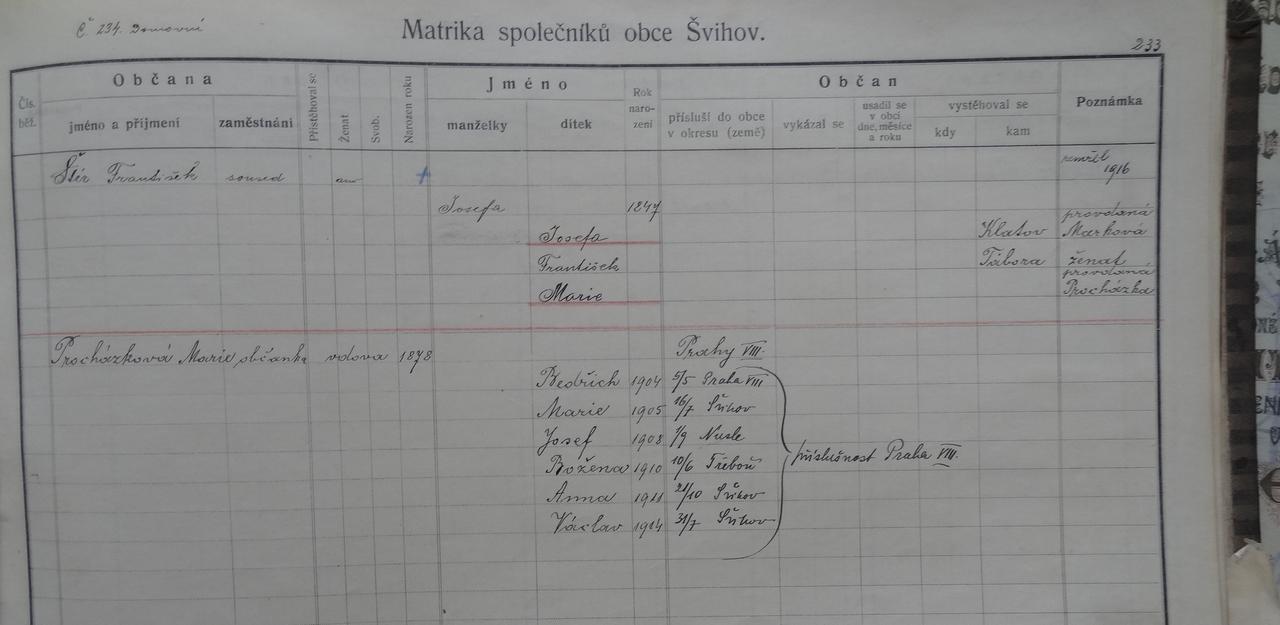 č. 234. Domovní
Matrika společníků obce Švihov.
233
Čís. běž.
Občana
jméno a příjmení
zaměstnání
Přistěhoval se
Ženat
Svob.
Narozen roku
Jméno
manželky
dítek
Rok naro- zení
Občan
přísluší do obce v okresu (země)
vykázal se
usadil se v obci dne, měsíce a roku
vystěhoval se
kdy
kam
Poznámka
Štér František soused ano + zemřel 1916
Josefa 1847
Josefa Klatov provdaná Marková
František Tábora ženat
Marie provdaná Procházka
Procházková Marie občanka vdova 1878 Prahy VIII.
Bedřich 1904 5/5 Praha VIII
Marie 1905 16/7 Švihov
Josef 1908 1/9 Nusle
příslušnost Praha VIII.
Božena 1910 10/6 Třeboň
Anna 1911 21/10 Švihov
Václav 1914 31/7 Švihov